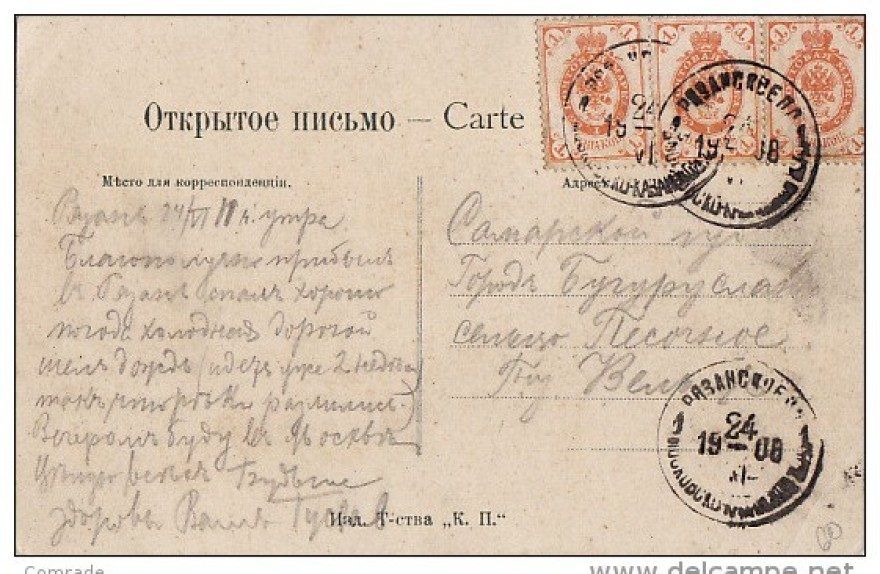 Открытое письмо — Carte
Мѣсто для корреспонденціи.
Адрес
Рязань 24/VI 11 ч. утра.
Благополучно прибылъ
въ Рязань спалъ хорошо
погода холодная дорогой
шелъ дождь (идетъ уже 2 недѣли
такъ что рѣки разлились)
Вечеромъ буду въ Москвѣ
Будьте
здоровы Вашъ
Самарской губ
Городъ Бугурусланъ
сельцо Песочное
Изд. Т-ства „К. П."
РЯЗАНСК
24
19 08
VI
РЯЗАНСКОЕ
24
19 08
VI
60
Comrade
www.delcampe.net